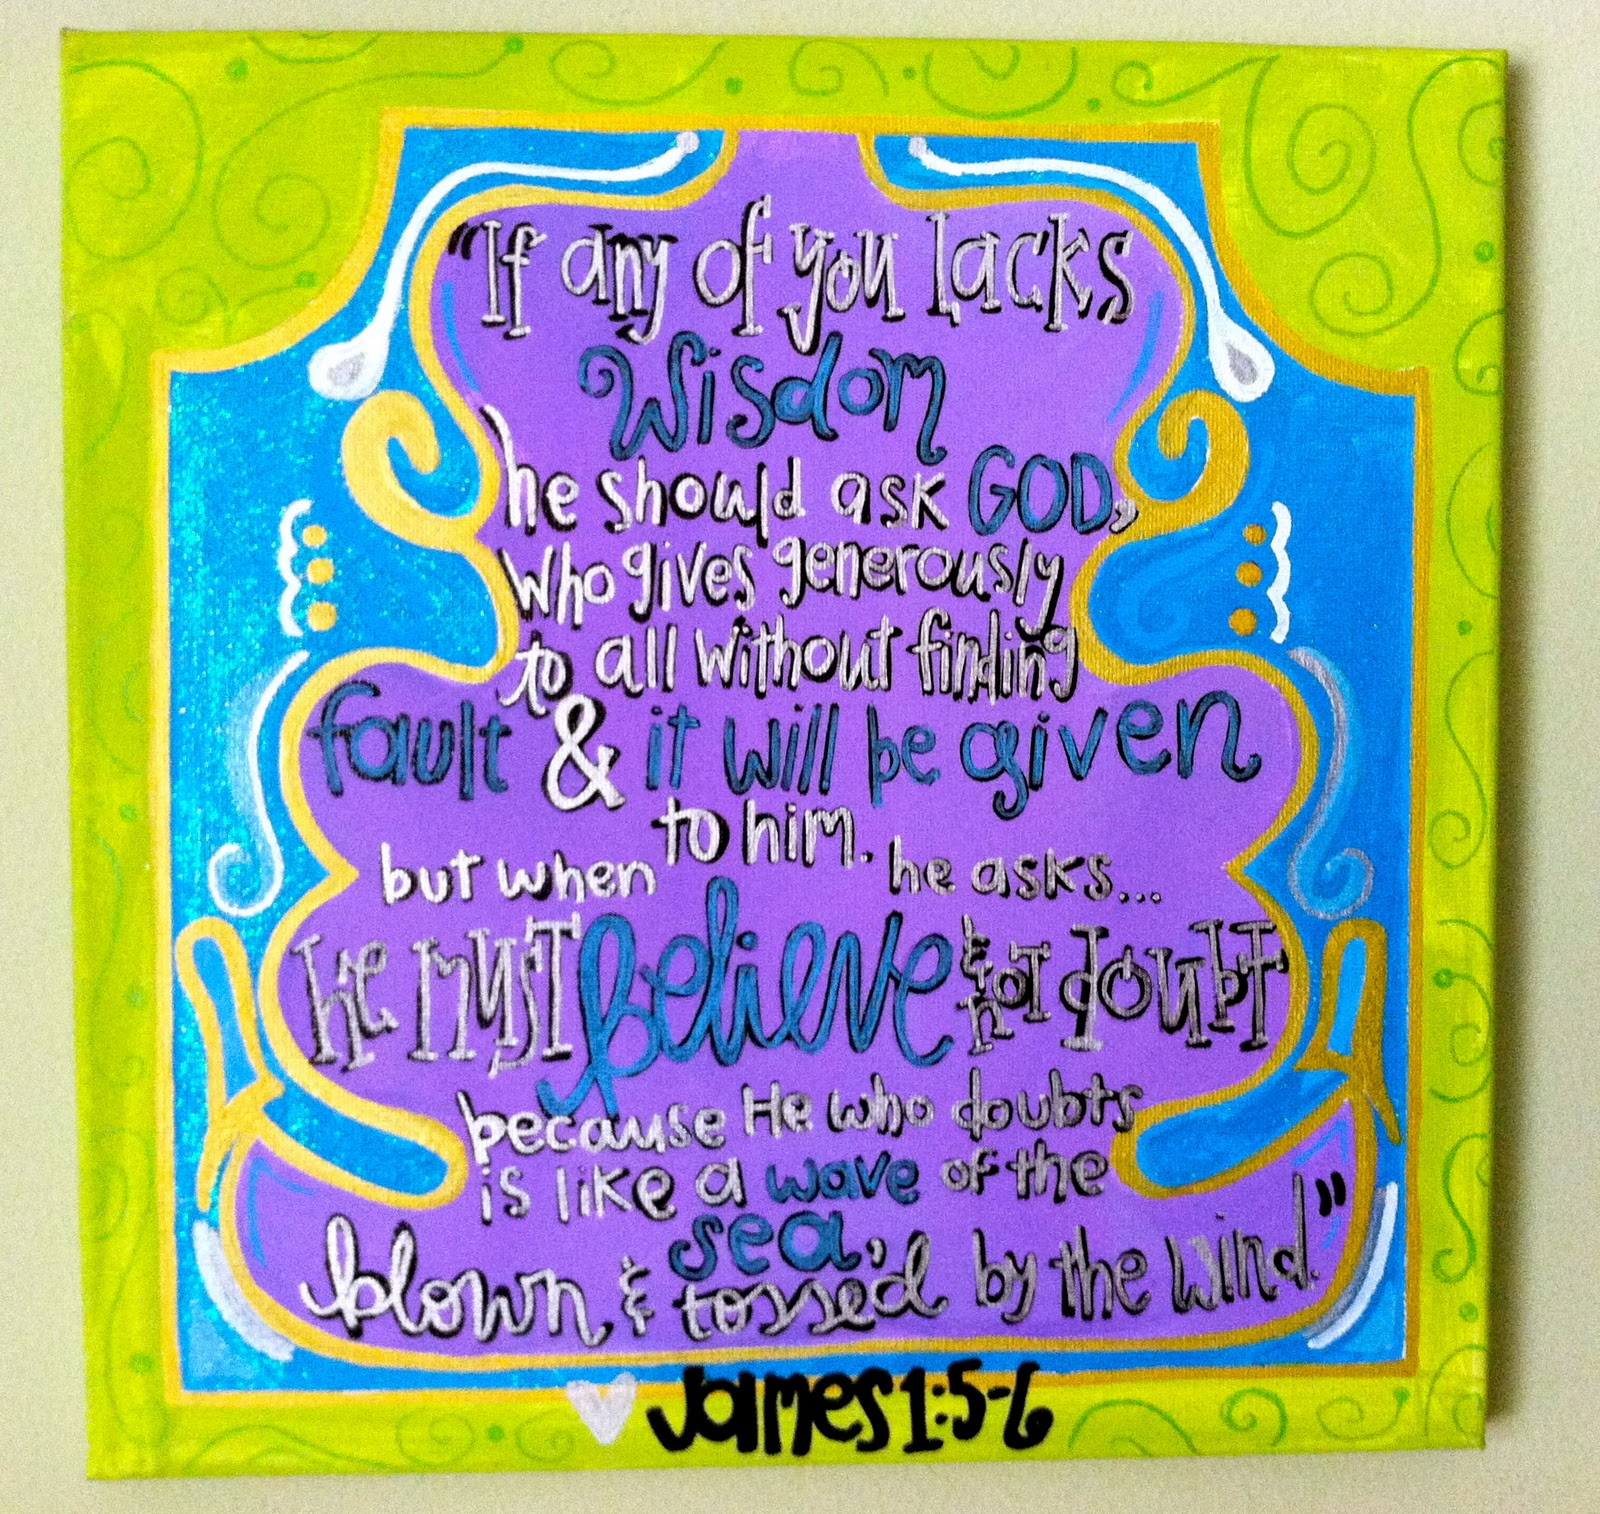 "If any of you lacks
Wisdom
he should ask GOD,
who gives generously
to all without finding
fault & it will be given
to him.
but when he asks...
He must Believe & not doubt
because He who doubts
is like a wave of the
sea,
blown & tossed by the wind."
James 1:5-6